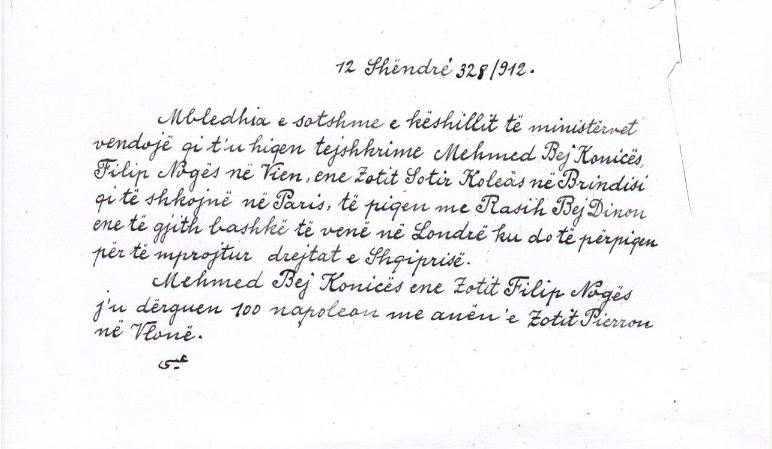 12 Shëndré 328/912.
Mbledhia e sotshme e këshillit të ministërvet
vendojë qi t'u hiqen tejshkrime Mehmed Bej Konicës,
Filip Nogës në Vien, ene Zotit Sotir Koleäs në Brindisi
qi të shkojnë në Paris, të piqen me Rasih Bej Dinon
ene të gjith bashkë të venë në Londrë ku do të përpiqen
për të mprojtur drejtat e Shqiprisë.
Mehmed Bej Konicës ene Zotit Filip Nogës
j'u dërguen 100 napoleon me anën'e Zotit Pierron
në Vlonë.